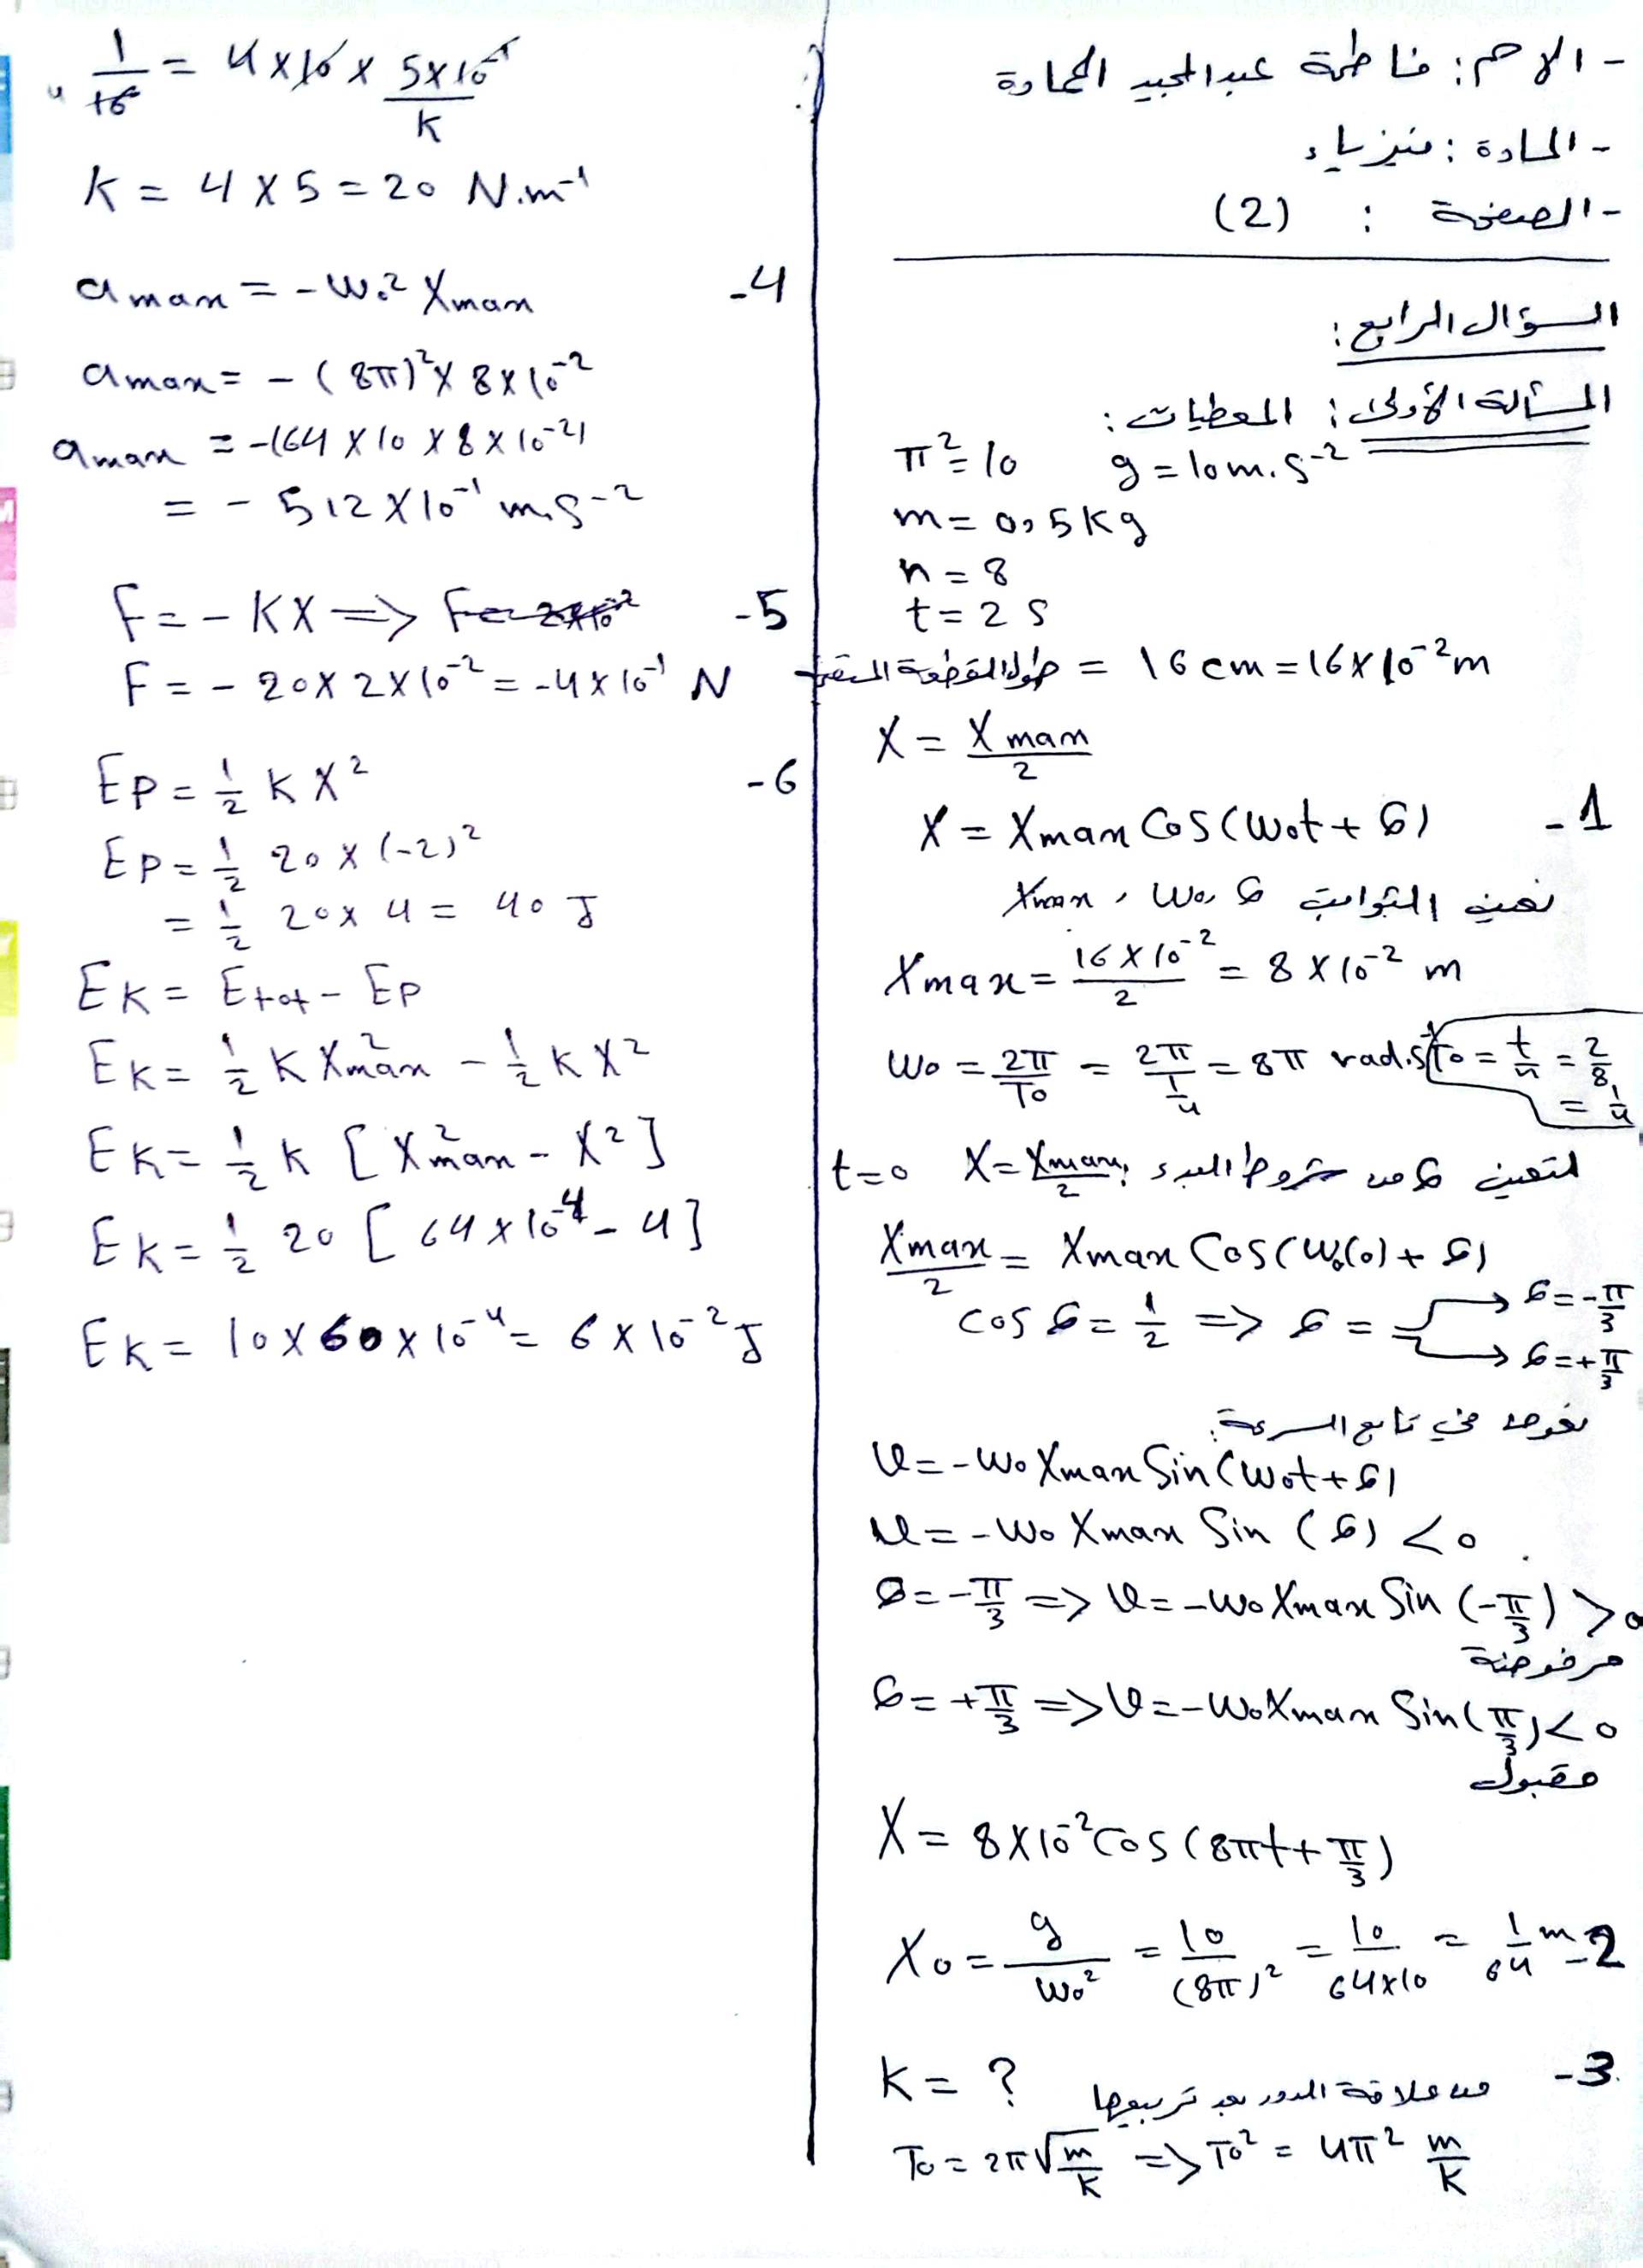 - الاسم : فاطمة عبدالمجيد الحمادة
- المادة : فيزياء
- الصفحة : (2)
السؤال الرابع :
المسألة الأولى : المعطيات :
π² = 10 g = 10 m.s⁻²
m = 0,5 Kg
n = 8
t = 2 s
طول القطعة المستقيمة = 16 cm = 16 × 10⁻² m
X = Xmax/2
-1 X = Xmax Cos(ω₀t + φ)
نعين الثوابت Xmax , ω₀, φ
Xmax = 16 × 10⁻²/2 = 8 × 10⁻² m
ω₀ = 2π/T₀ = 2π/(1/4) = 8π rad.s⁻¹ T₀ = t/n = 2/8 = 1/4
لتعيين φ من شروط البدء X = Xmax/2 , t=0
Xmax/2 = Xmax Cos(ω₀(0) + φ)
cos φ = 1/2 => φ = φ = -π/3
φ = +π/3
نعوض في تابع السرعة :
v = -ω₀ Xmax Sin(ω₀t + φ)
v = -ω₀ Xmax Sin (φ) < 0
φ = -π/3 => v = -ω₀ Xmax Sin (-π/3) > 0
مرفوضة
φ = +π/3 => v = -ω₀ Xmax Sin(π/3) < 0
مقبول
X = 8 × 10⁻² Cos (8πt + π/3)
-2 X₀ = g/ω₀² = 10/(8π)² = 10/64×10 = 1/64 m
-3 K = ? من علاقة الدور بعد تربيعها
T₀ = 2π√(m/K) => T₀² = 4π² m/K
1/16 = 4 × 10 × 5×10⁻¹/K
K = 4 × 5 = 20 N.m⁻¹
-4 amax = -ω₀² Xmax
amax = - (8π)² × 8 × 10⁻²
amax = -(64 × 10 × 8 × 10⁻²)
= - 512 × 10⁻¹ m.s⁻²
-5 F = - KX =>
F = - 20 × 2 × 10⁻² = -4 × 10⁻¹ N
-6 EP = 1/2 K X²
EP = 1/2 20 × (-2)²
= 1/2 20 × 4 = 40 J
EK = Etot - EP
EK = 1/2 K X²max - 1/2 K X²
EK = 1/2 K [X²max - X²]
EK = 1/2 20 [64 × 10⁻⁴ - 4]
EK = 10 × 60 × 10⁻⁴ = 6 × 10⁻² J